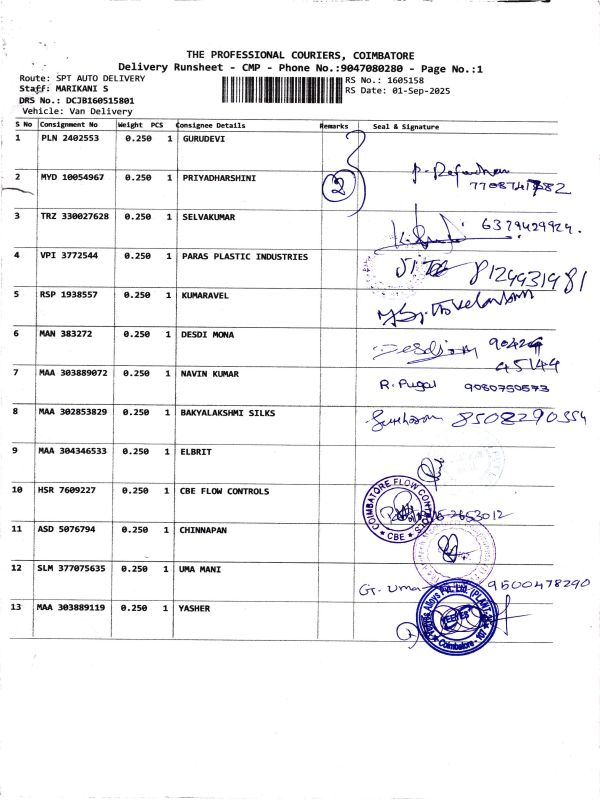 THE PROFESSIONAL COURIERS, COIMBATORE
Delivery Runsheet - CMP - Phone No.:9047080280 - Page No.:1
Route: SPT AUTO DELIVERY
RS No.: 1605158
Staff: MARIKANI S
RS Date: 01-Sep-2025
DRS No.: DCJB160515801
Vehicle: Van Delivery
S No Consignment No Weight PCS Consignee Details Remarks Seal & Signature
1 PLN 2402553 0.250 1 GURUDEVI
2 MYD 10054967 0.250 1 PRIYADHARSHINI 2
3 TRZ 330027628 0.250 1 SELVAKUMAR 6379429924.
4 VPI 3772544 0.250 1 PARAS PLASTIC INDUSTRIES 8124931981
5 RSP 1938557 0.250 1 KUMARAVEL
6 MAN 383272 0.250 1 DESDI MONA
45144
7 MAA 303889072 0.250 1 NAVIN KUMAR R. Pugal 9080750573
8 MAA 302853829 0.250 1 BAKYALAKSHMI SILKS 8508290354
9 MAA 304346533 0.250 1 ELBRIT
10 HSR 7609227 0.250 1 CBE FLOW CONTROLS COIMBATORE FLOW CONTROLS ★ CBE ★
11 ASD 5076794 0.250 1 CHINNAPAN
12 SLM 377075635 0.250 1 UMA MANI G. Uma 9500478290
13 MAA 303889119 0.250 1 YASHER Alloys Pvt. Ltd. (PLANT Coimbatore - 107